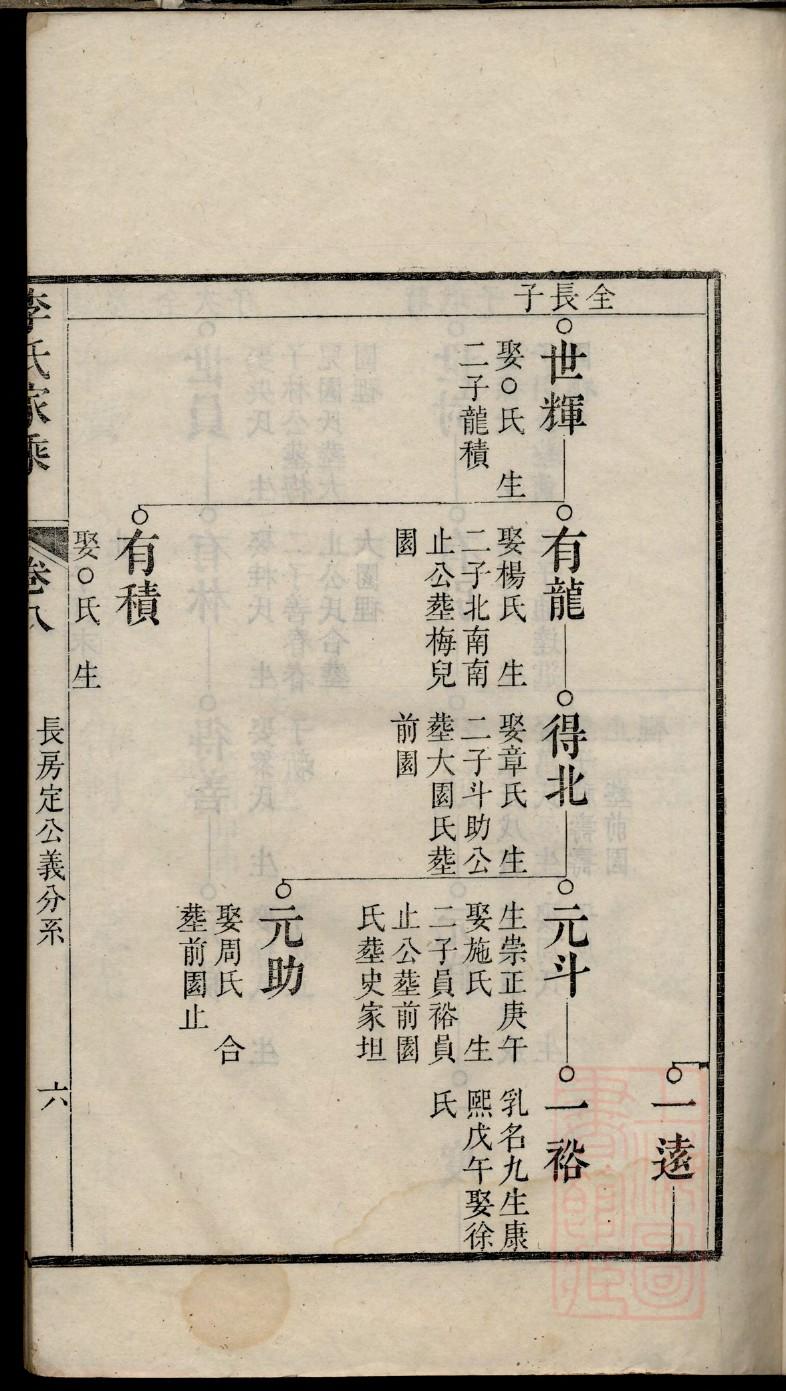 全長子
世輝
娶○氏 生
二子龍積
有龍
娶楊氏 生
二子北南南
止公塟梅兒
園
得北
娶章氏 生
二子斗助公
塟大園氏塟
前園
元斗
生崇正庚午
娶施氏 生
二子員裕員
止公塟前園
氏塟史家坦
一裕
乳名九生康
熙戊午娶徐
氏
一遠
元助
娶周氏 合
塟前園止
有積
娶○氏 生
李氏家乘
卷八
長房定公義分系
六